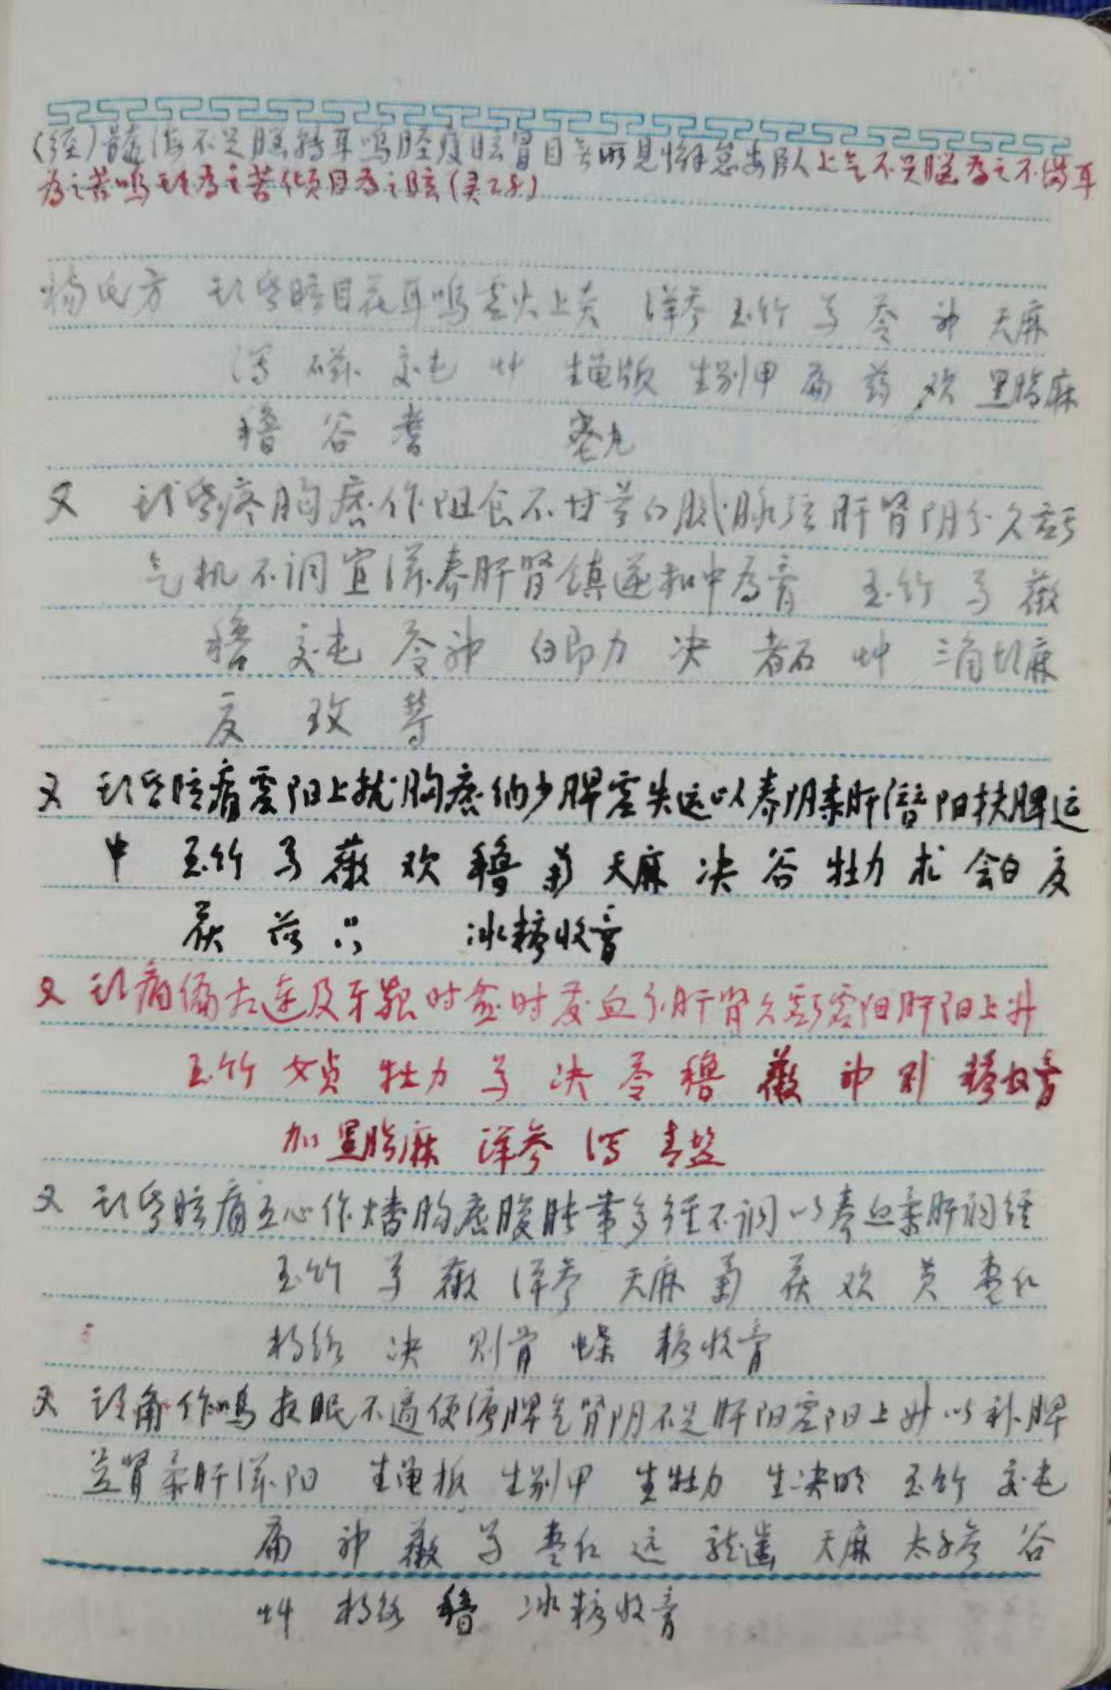 (经)髓海不足脑转耳鸣胫痠眩冒目无所见懈怠安卧 上气不足脑为之不满耳
为之苦鸣头为之苦倾目为之眩(灵28)
杨氏方 头晕眩目花耳鸣虚火上炎 洋参 玉竹 芍 苓 神 天麻
泻 磁 交屯 艸 生龟版 生别甲 萹 药 欢 黑脂麻
穞 谷 耆 蜜丸
又 头晕疼胸痞作阻食不甘苔白腻脉弦肝肾阴分久亏
气机不调宜滋养肝肾镇逆和中为膏 玉竹 芍 薇
穞 交屯 苓神 白即力 决 者石 艸 三角胡麻
夏 玫 等
又 头晕眩痛虚阳上扰胸痞纳少脾虚失运以养阴柔肝潜阳扶脾运
中 玉竹 芍 薇 欢 穞 菊 天麻 决 谷 牡力 术 会白 夏
茯 冰糖收膏
又 头痛偏右连及牙龈时盛时衰血分肝肾久亏虚阳肝阳上升
玉竹 女贞 牡力 芍 决 苓 穞 薇 神 别 糖收膏
加 黑脂麻 洋参 泻 青盐
又 头晕眩痛五心作燔胸痞腹胀带多经不调以养血柔肝调经
玉竹 芍 薇 洋参 天麻 菊 茯 欢 黄 枣仁
杉络 决 则骨 蝶 糖收膏
又 头角作鸣夜眠不适便溏脾气肾阴不足肝阳虚阳上升以补脾
益肾柔肝滋阳 生龟板 生别甲 生牡力 生决明 玉竹 交屯
萹 神 薇 芍 枣仁 远 龙齿 天麻 太子参 谷
艸 杉络 穞 冰糖收膏